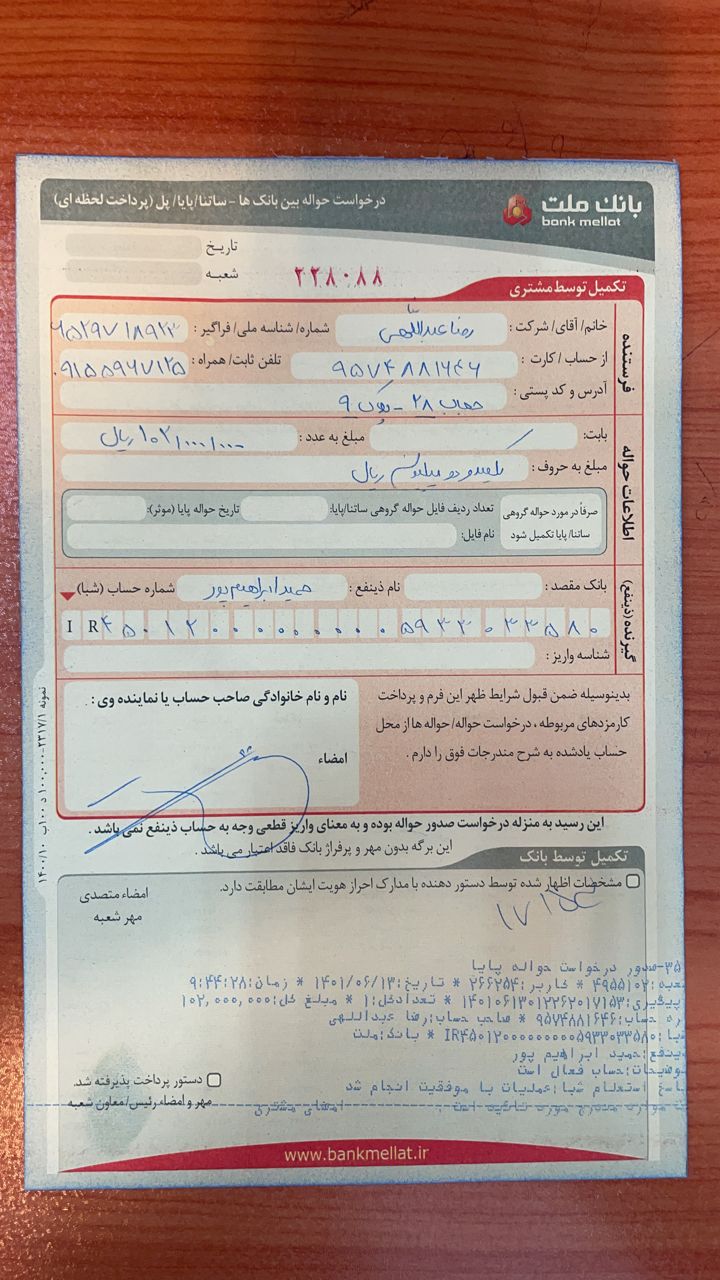 بانک ملت
bank mellat
درخواست حواله بین بانک ها - ساتنا/پایا/ پل (پرداخت لحظه ای)
تاریخ
شعبه
۲۲۸۰۸۸
تکمیل توسط مشتری
فرستنده
خانم/ آقای/ شرکت: رضا عبداللهی شماره/ شناسه ملی/ فراگیر:
از حساب / کارت: ۹۵۷۴۸۸۱۶۴۶ تلفن ثابت/ همراه: ۰۹۱۵۵۹۶۷۱۲۵
آدرس و کد پستی: ۲۸ - ۹
اطلاعات حواله
بابت: مبلغ به عدد: ۱۰۲/۰۰۰/۰۰۰ ریال
مبلغ به حروف: یکصد و دو میلیون ریال
صرفاً در مورد حواله گروهی ساتنا/ پایا تکمیل شود
تعداد ردیف فایل حواله گروهی ساتنا/پایا: تاریخ حواله پایا (موثر):
نام فایل:
گیرنده (ذینفع)
بانک مقصد: نام ذینفع: حمید ابراهیم پور شماره حساب (شبا)
IR ۴۵۰۱۲۰۰۰۰۰۰۰۰۰۵۹۳۳۰۳۳۵۸۰
شناسه واریز:
بدینوسیله ضمن قبول شرایط ظهر این فرم و پرداخت
کارمزدهای مربوطه، درخواست حواله/ حواله ها از محل
حساب یادشده به شرح مندرجات فوق را دارم.
نام و نام خانوادگی صاحب حساب یا نماینده وی:
امضاء
این رسید به منزله درخواست صدور حواله بوده و به معنای واریز قطعی وجه به حساب ذینفع نمی باشد.
این برگه بدون مهر و پرفراژ بانک فاقد اعتبار می باشد.
تکمیل توسط بانک
مشخصات اظهار شده توسط دستور دهنده با مدارک احراز هویت ایشان مطابقت دارد.
امضاء متصدی
مهر شعبه
۳۵-صدور درخواست حواله پایا
عبه:۴۹۵۵۱۰۲ * کاربر:۲۶۶۲۵۴ * تاریخ:۱۴۰۱/۰۶/۱۳ * زمان:۹:۴۴:۲۸
پیگیری:۱۴۰۱۰۶۱۳۰۱۲۲۶۲۰۱۷۱۵۳ * تعدادکل:۱ * مبلغ کل:۱۰۲,۰۰۰,۰۰۰
ره حساب:۹۵۷۴۸۸۱۶۴۶ * صاحب حساب:رضا عبداللهی
با:IR۴۵۰۱۲۰۰۰۰۰۰۰۰۰۵۹۳۳۰۳۳۵۸۰ * بانک:ملت
ینفع:حمید ابراهیم پور
وضیحات:حساب فعال است
اسخ استعلام شبا:عملیات با موفقیت انجام شد
امضای مشتری
دستور پرداخت پذیرفته شد.
مهر و امضاء رئیس/ معاون شعبه
www.bankmellat.ir